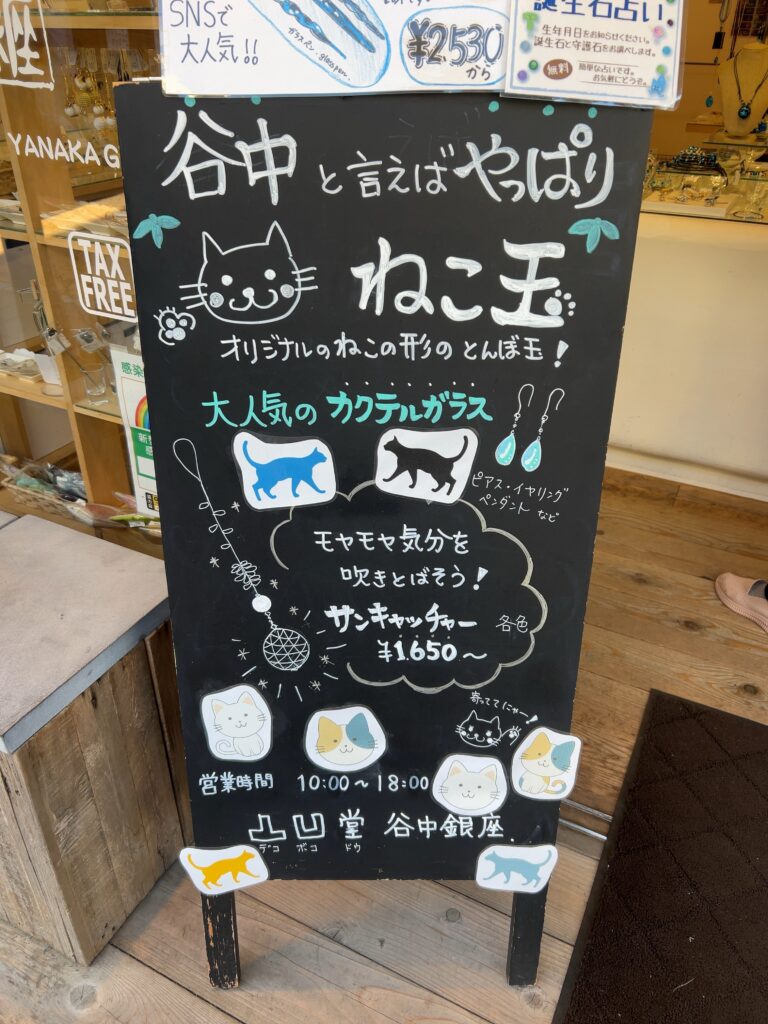 SNSで
大人気!!
ガラスペン glass pen
¥2,530
から
誕生石占い
生年月日をお知らせください。
誕生石と守護石をお調べします。
無料
簡単な占いです。
お気軽にどうぞ。
YANAKA G
TAX
FREE
谷中と言えばやっぱり
ねこ玉
オリジナルのねこの形のとんぼ玉!
大人気のカクテルガラス
ピアス・イヤリング
ペンダント など
モヤモヤ気分を
吹きとばそう!
サンキャッチャー 各色
¥1,650〜
寄っててにゃー!
営業時間 10:00〜18:00
凸凹堂 谷中銀座
デコ ボコ ドウ